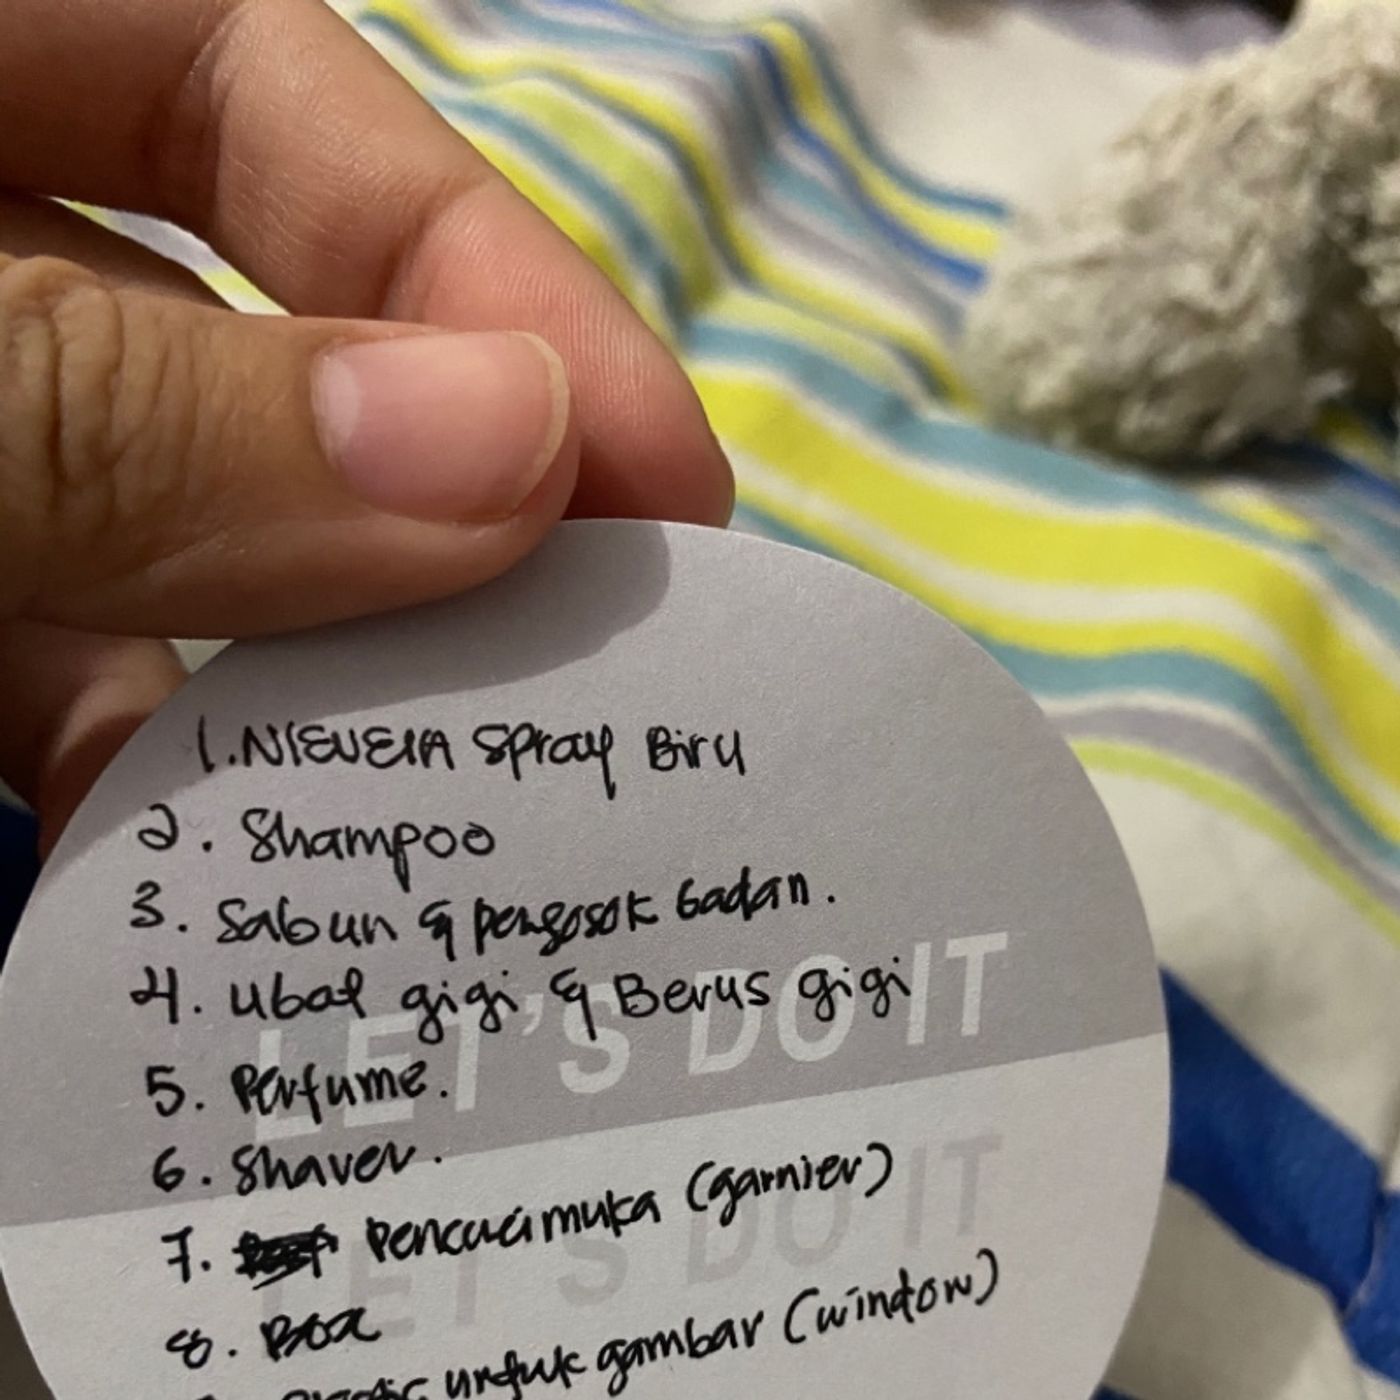 1. NIEVEIA Spray Biru
2. Shampoo
3. Sabun & pengosok badan.
4. Ubat gigi & Berus gigi
LET'S DO IT
5. Perfume.
6. Shaver.
7. Pencuci muka (garnier)
LET'S DO IT
8. Box
untuk gambar (window)